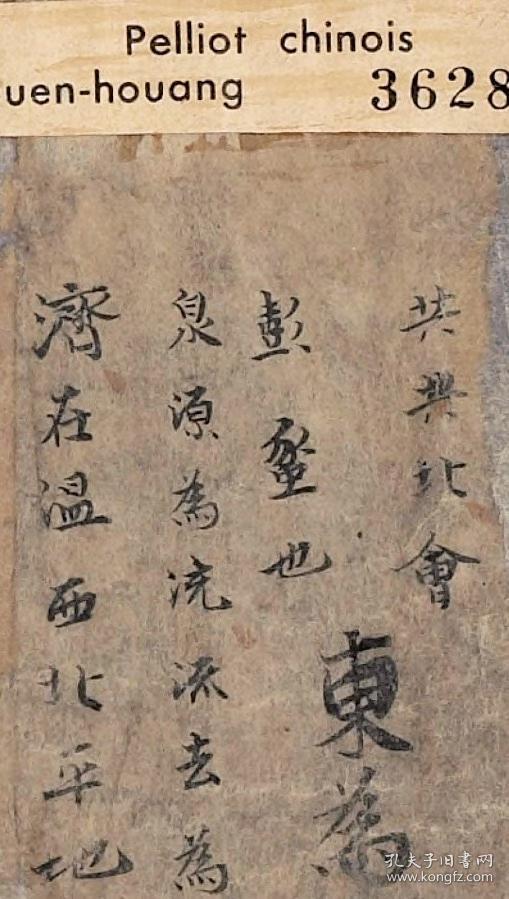 Pelliot chinois
uen-houang 3628
共共北會
彭蠡也
東為
泉源為沇流去為
濟在溫西北平地
孔夫子旧书网
www.kongfz.com